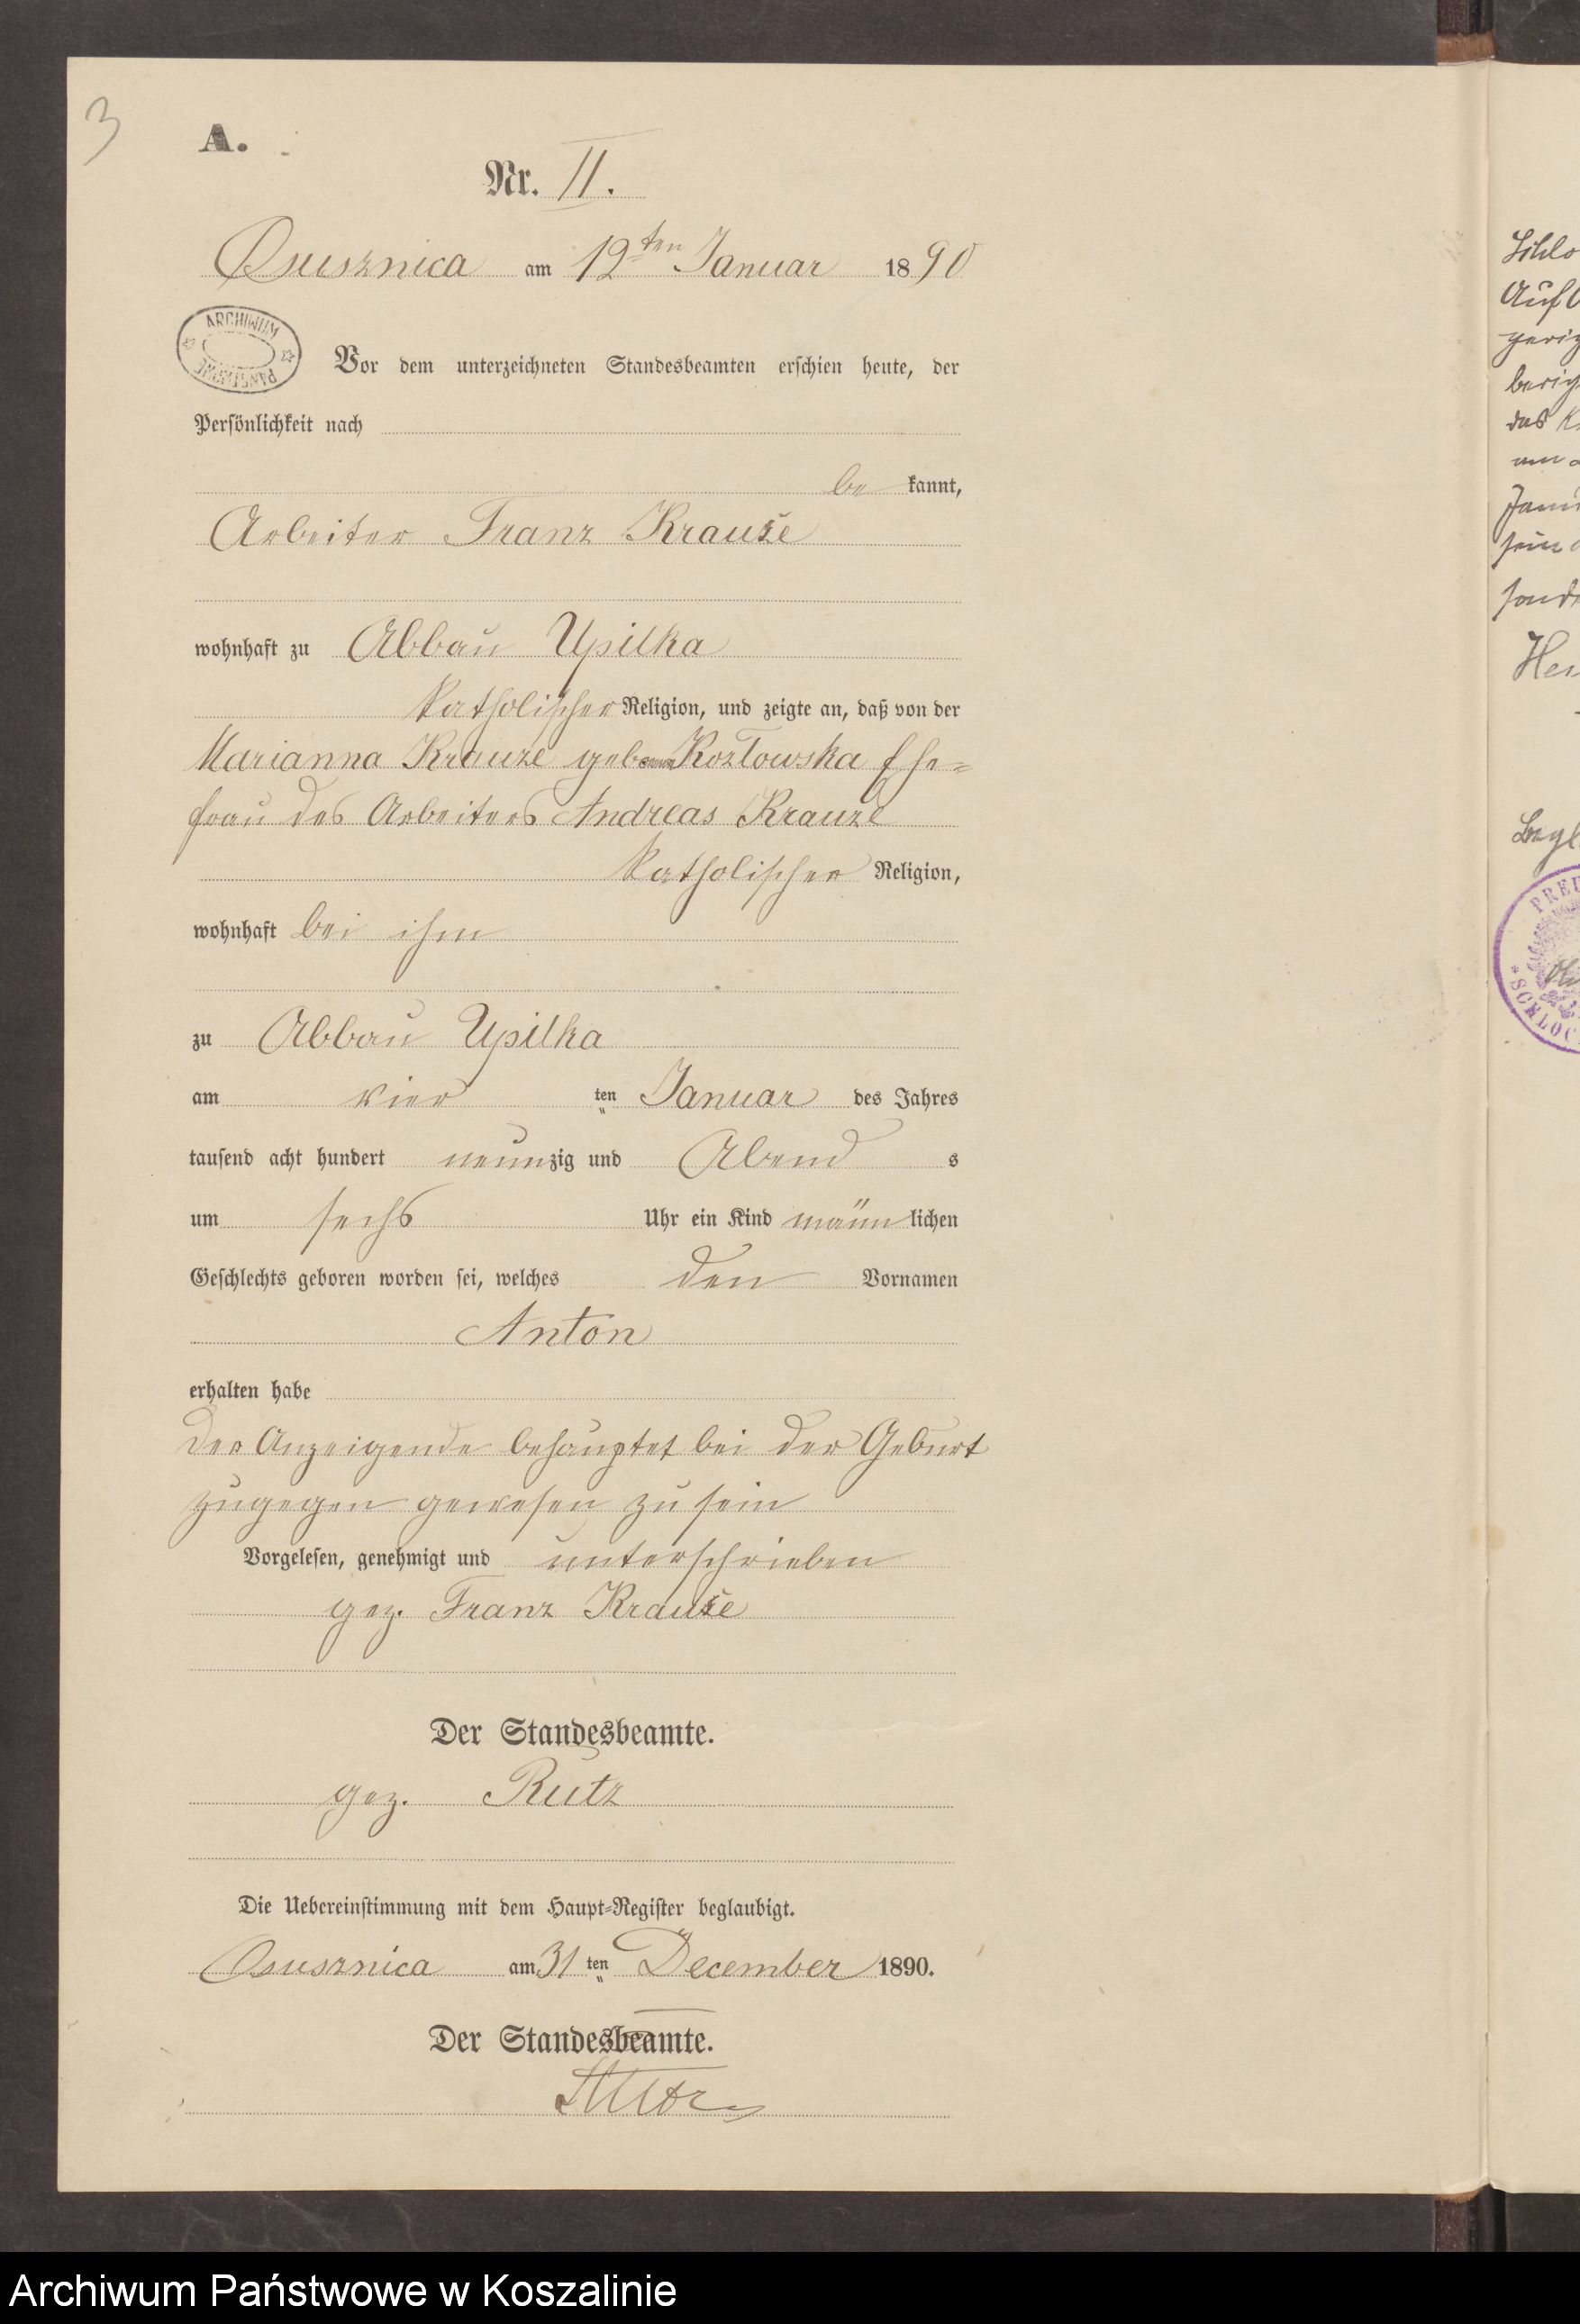 3
A.
Nr. II.
Ossusznica am 12ten Januar 1890
ARCHIWUM PAŃSTWOWE
Vor dem unterzeichneten Standesbeamten erschien heute, der
Persönlichkeit nach
be kannt,
Arbeiter Franz Krauze
wohnhaft zu Abbau Upilka
katholischer Religion, und zeigte an, daß von der
Marianna Krauze geborene Kozłowska Ehe=
frau des Arbeiters Andreas Krauze
katholischer Religion,
wohnhaft bei ihm
zu Abbau Upilka
am vier ten Januar des Jahres
tausend acht hundert neunzig und Abend s
um sechs Uhr ein Kind männlichen
Geschlechts geboren worden sei, welches den Vornamen
Anton
erhalten habe
Der Anzeigende behauptet bei der Geburt
zugegen gewesen zu sein
Vorgelesen, genehmigt und unterschrieben
gez. Franz Krauze
Der Standesbeamte.
gez. Rutz
Die Uebereinstimmung mit dem Haupt=Register beglaubigt.
Ossusznica am 31 ten December 1890.
Der Standesbeamte.
Rutz
Schlo
Auf
das K
Janu
sein
Her
Begl
PREU
SCHLOC
Archiwum Państwowe w Koszalinie